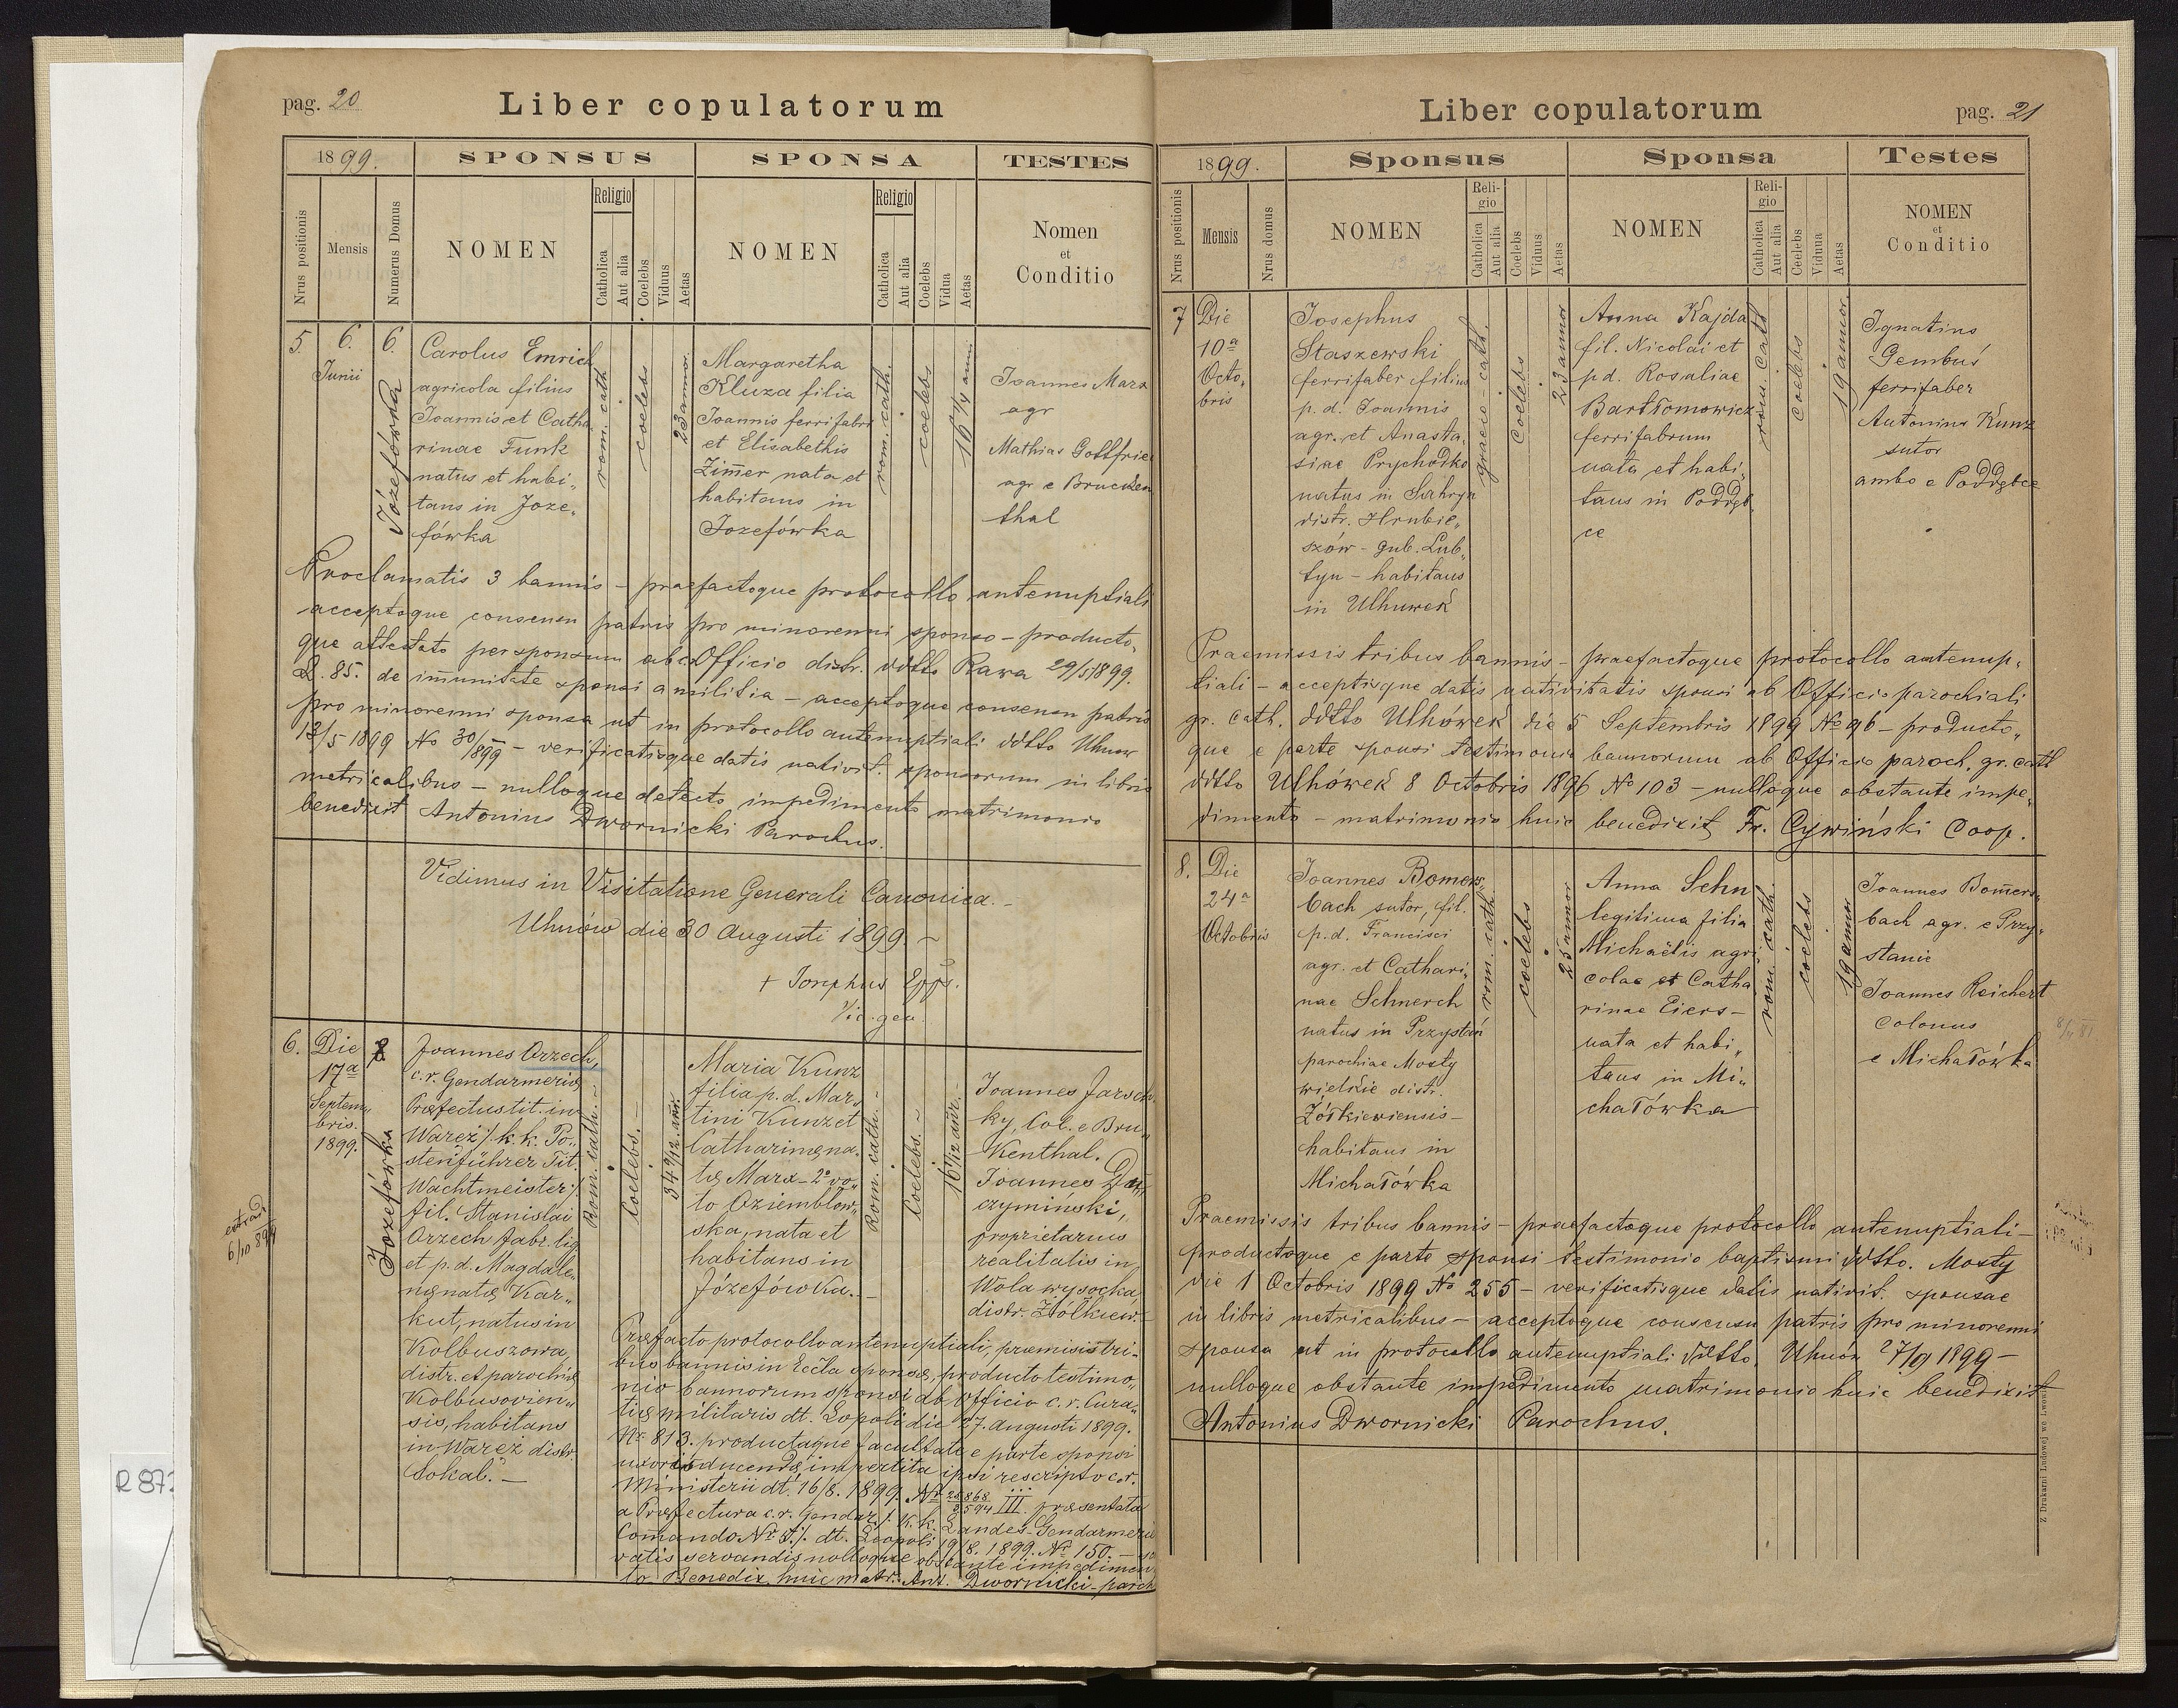 pag. 20
Liber copulatorum
1899.
SPONSUS
SPONSA
TESTES
Nrus positionis
Mensis
Numerus Domus
NOMEN
Religio
Catholica
Aut alia
Coelebs
Viduus
Aetas
NOMEN
Religio
Catholica
Aut alia
Coelebs
Vidua
Aetas
Nomen
et
Conditio
5.
6.
Junii
6.
Józefówka
Carolus Emrich
agricola filius
Joannis et Catha
rinae Funk
natus et habi„
tans in Joze„
fówka
rom. cath.
coelebs
23 annor.
Margaretha
Kluza filia
Joannis ferrifabri
et Elisabethis
Zimer nata et
habitans in
Jozefówka
rom. cath.
coelebs
16 1/4 ann.
Joannes Marx
agr
Mathias Gottfried
agr e Brucken
thal
Proclamatis 3 bannis – praefactoque protocollo antenuptiali
acceptoque consensu patris pro minorenni sponso – producto„
que attestato per sponsum ab c. Officio distr. ddtto Rawa 29/5 1899.
L. 85. de imunitate sponsi a militia – acceptoque consensu patris
pro minorenni sponsa ut in protocollo antenuptiali ddtto Uhnow
13/5 1899 No 30/899 – verificatisque datis nativit. sponsorum in libris
metricalibus – nulloque detecto impedimento matrimonio
benedixit Antonius Dwornicki Parochus.
Vidimus in Visitatione Generali Canonica. –
Uhnów die 30 Augusti 1899 ~
+ Josephus Epps.
Vic. gen.
6.
Die
17a
Septem„
bris.
1899.
Jozefówka
Joannes Orzech,
c. r. Gendarmeriæ
Præfectus tit. in
Waręż /. k. k. Po„
stenführer Tit.
Wachtmeister ./
fil. Stanislai
Orzech fabr. lig
et p. d. Magdale„
næ natæ Kar„
kut, natus in
Kolbuszowa,
distr. et parochiæ
Kolbusovien„
sis, habitans
in Waręż distr.
Sokal. –
Rom. cath. –
Coelebs. –
34 9/12 ann.
Maria Kunz
filia p. d. Mar„
tini Kunz et
Catharinæ na„
tæ Marx – 2º vo„
to Oziembłow„
ska, nata et
habitans in
Józefówka. –
Rom. cath. –
Coelebs. ~
16 1/12 ann.
Joannes Jarsch
ky, Col. e Bru„
kenthal.
Joannes
czymiński,
proprietarius
realitatis in
Wola wysocka
distr. Żółkiew. –
extrad.
6/10 899
Præfacto protocollo antenuptiali, præmissis tri„
bus bannis in Eccla sponsæ, producto testimo„
nio bannorum sponsi ab Officio c. r. Cura„
tiæ militaris dt. Leopoli die 27. Augusti 1899.
Nr 813. productaque facultate e parte sponsi
uxoris ducendæ impertita ipsi rescripto c. r.
Ministerii dt. 16/8. 1899. Nr III præsentata
a Præfectura c. r. Gendar /. k. k. Landes-Gendarmerie
Comando Nr 5 ./. dt. Leopoli 19/8. 1899. Nr 150. –
vatis servandis nulloque obstante impedimen„
to Benedix. huic matr. Ant. Dwornicki – paroch
Liber copulatorum
pag. 21
1899.
Sponsus
Sponsa
Testes
Nrus positionis
Mensis
Nrus domus
NOMEN
Reli-
gio
Catholica
Aut alia
Coelebs
Viduus
Aetas
NOMEN
Reli-
gio
Catholica
Aut alia
Coelebs
Vidua
Aetas
NOMEN
et
Conditio
7
Die
10a
Octo„
bris
Josephus
Staszewski
ferrifaber filius
p. d. Joannis
agr. et Anasta„
siae Prychodko
natus in Sahryn
distr. Hrubie„
szów – gub. Lub„
lyn – habitans
in Ulhuwek
graeco-cath.
coelebs
23 annor
Anna Kajda
fil. Nicolai et
p d. Rosaliae
Bartłomowicz
ferrifabrum
nata et habi„
tans in Poddęb„
ce
rom. cath
coelebs
19 annor
Ignatius
Gembuś
ferrifaber
Antonius Kunz
sutor
ambo e Poddębce
Praemissis tribus bannis – praefactoque protocollo antenup„
tiali – acceptisque datis nativitatis sponsi ab Officio parochiali
gr. cath. ddtto Ulhówek die 5 Septembris 1899 No 96 – producto„
que e parte sponsi testimonio bannorum ab Officio paroch. gr. cath
ddtto Ulhówek 8 Octobris 1896 No 103 – nulloque obstante impe„
dimento – matrimonio huic benedixit Fr. Cywiński Coop.
8.
Die
24a
Octobris
Joannes Bomers„
bach sutor, fil.
p. d. Francisci
agr. et Cathari„
nae Schnerch
natus in Przystań
parochiae Mosty
wielkie distr.
Żółkiewiensis –
habitans in
Michałówka
rom. cath.
coelebs
25 annor
Anna Sehn
legitima filia
Michaëlis agri„
colae et Catha„
rinae Eiers –
nata et habi„
tans in Mi„
chałówka
rom. cath.
coelebs
19 annor
Joannes Bomers„
bach agr. e Przy„
stanie
Joannes Reichert
colonus
e Michałówka
Praemissis tribus bannis – praefactoque protocollo antenuptiali –
productoque e parte sponsi testimonio baptismi ddtto. Mosty
die 1 Octobris 1899 No 255 – verificatisque datis nativit. sponsae
in libris metricalibus – acceptoque consensu patris pro minorenni
sponsa ut in protocollo antenuptiali ddtto. Uhnów 27/9 1899 –
nulloque obstante impedimento matrimonio huic benedixit
Antonius Dwornicki Parochus.
Z Drukarni Ludowej we Lwowie
R 87